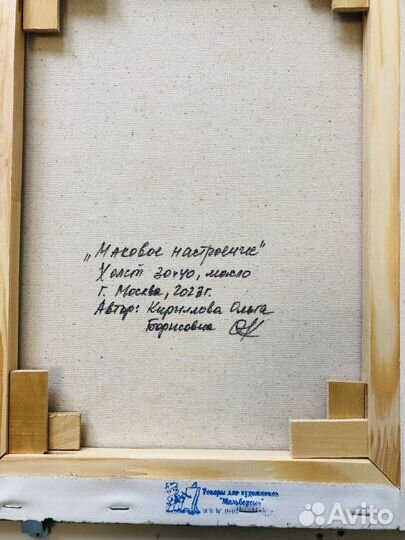 „Маковое настроение"
Холст 30х40, масло
г. Москва, 2023г.
Автор: Кириллова Ольга
Борисовна ОК
Товары для художников
"Мольбертыч"
Avito